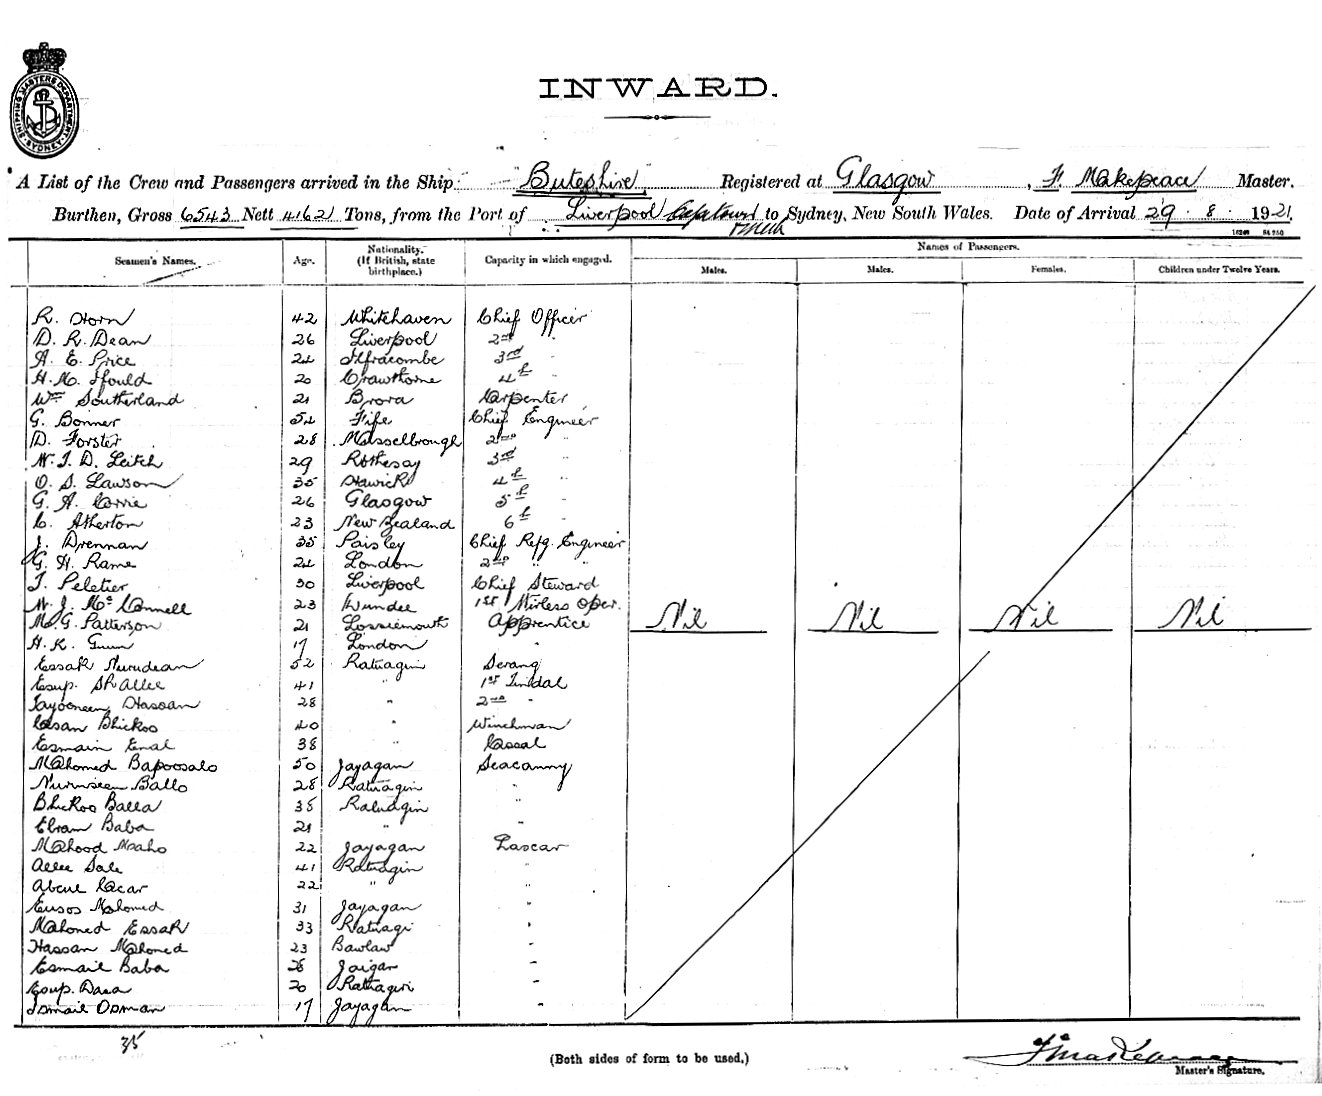 SHIPPING MASTERS DEPARTMENT SYDNEY
INWARD.
A List of the Crew and Passengers arrived in the Ship Buteshire Registered at Glasgow, F. Makepeace Master.
Burthen, Gross 6543 Nett 4162 Tons, from the Port of Liverpool to Sydney, New South Wales. Date of Arrival 29. 8. 1921.
Seamen's Names. Age. Nationality. (If British, state birthplace.) Capacity in which engaged. Names of Passengers.
Males. Males. Females. Children under Twelve Years.
R. Horn 42 Whitehaven Chief Officer
D. R. Dean 26 Liverpool 2nd "
A. E. Price 24 Ilfracombe 3rd "
H. M. 20 Crawthorne 4th "
Wm Southerland 21 Brora Carpenter
G. Bonner 54 Fife Chief Engineer
D. Forster 28 Musselbrough 2nd "
W. J. D. Leitch 29 Rothesay 3rd "
O. S. Lawson 35 Hawick 4th "
G. A. Corrie 26 Glasgow 5th "
C. Atherton 23 New Zealand 6th "
J. Drennan 35 Paisley Chief Refg. Engineer
G. H. Rame 24 London 2nd " "
T. Peletier 30 Liverpool Chief Steward
W. J. McConnell 23 Dundee 1st Wirless Oper.
M. G. Patterson 21 Lossiemouth Apprentice Nil Nil Nil Nil
H. K. Gunn 17 London "
Essak Nurudean 52 Ratnagiri Serang
Esup. Sk Allee 41 " 1st Tindal
Hassan 28 " 2nd "
Casan Bhickoo 40 " Winchman
Esmain Enal 38 " Cassal
Mahomed Bapoosalo 50 Jayagan Seacunny
Nurnseen Ballo 28 Ratnagiri "
Bhickoo Balla 38 Ratnagiri "
Ebram Baba 21 " "
Mahood 22 Jayagan Lascar
Allee Sale 41 Ratnagiri "
Abdul Cacar 22 " "
Eusos Mahomed 31 Jayagan "
Mahomed Essak 33 Ratnagi "
Hassan Mahomed 23 Bawlaw "
Esmail Baba 28 Jaigar "
Esup. Dawa 20 Ratnagiri "
Ismail Osman 17 Jayagan "
35
(Both sides of form to be used.)
F Makepeace
Master's Signature.